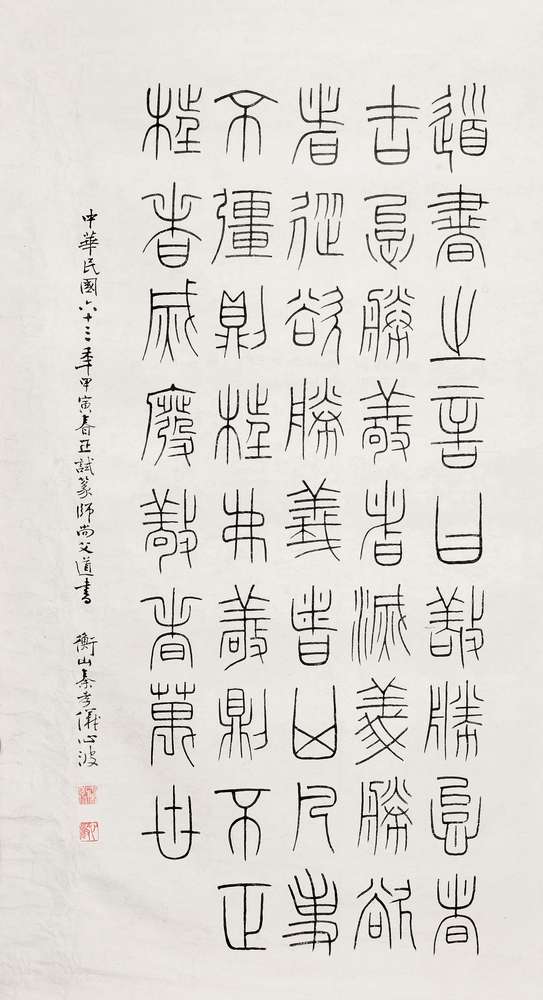 道書之言曰敬勝怠者
吉怠勝敬者滅義勝欲
者從欲勝義者凶凡事
不彊則枉弗敬則不正
枉者滅廢敬者萬世
中華民國六十三年甲寅春正試篆師尚父道書 衡山秦孝儀心波